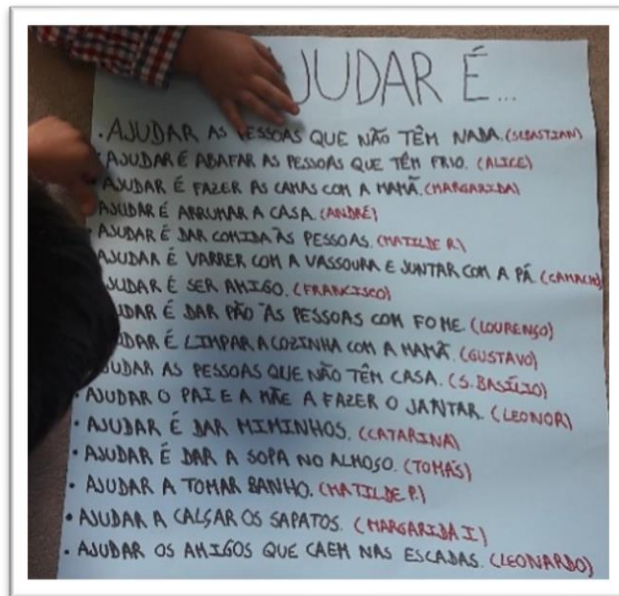 JUDAR É...
• AJUDAR AS PESSOAS QUE NÃO TÊM NADA. (SEBASTIAN)
AJUDAR É ABAFAR AS PESSOAS QUE TÊM FRIO. (ALICE)
AJUDAR É FAZER AS CAMAS COM A MAMÃ. (MARGARIDA)
AJUDAR É ARRUMAR A CASA. (ANDRÉ)
AJUDAR É DAR COMIDA ÀS PESSOAS. (MATILDE R.)
AJUDAR É VARRER COM A VASSOURA E JUNTAR COM A PÁ. (CAMACHO)
JUDAR É SER AMIGO. (FRANCISCO)
UDAR É DAR PÃO ÀS PESSOAS COM FOME. (LOURENÇO)
UDAR É LIMPAR A COZINHA COM A MAMÃ. (GUSTAVO)
JUDAR AS PESSOAS QUE NÃO TÊM CASA. (S. BASÍLIO)
• AJUDAR O PAI E A MÃE A FAZER O JANTAR. (LEONOR)
• AJUDAR É DAR MIMINHOS. (CATARINA)
• AJUDAR É DAR A SOPA NO ALMOÇO. (TOMÁS)
• AJUDAR A TOMAR BANHO. (MATILDE P.)
• AJUDAR A CALÇAR OS SAPATOS. (MARGARIDA I)
• AJUDAR OS AMIGOS QUE CAEM NAS ESCADAS. (LEONARDO)